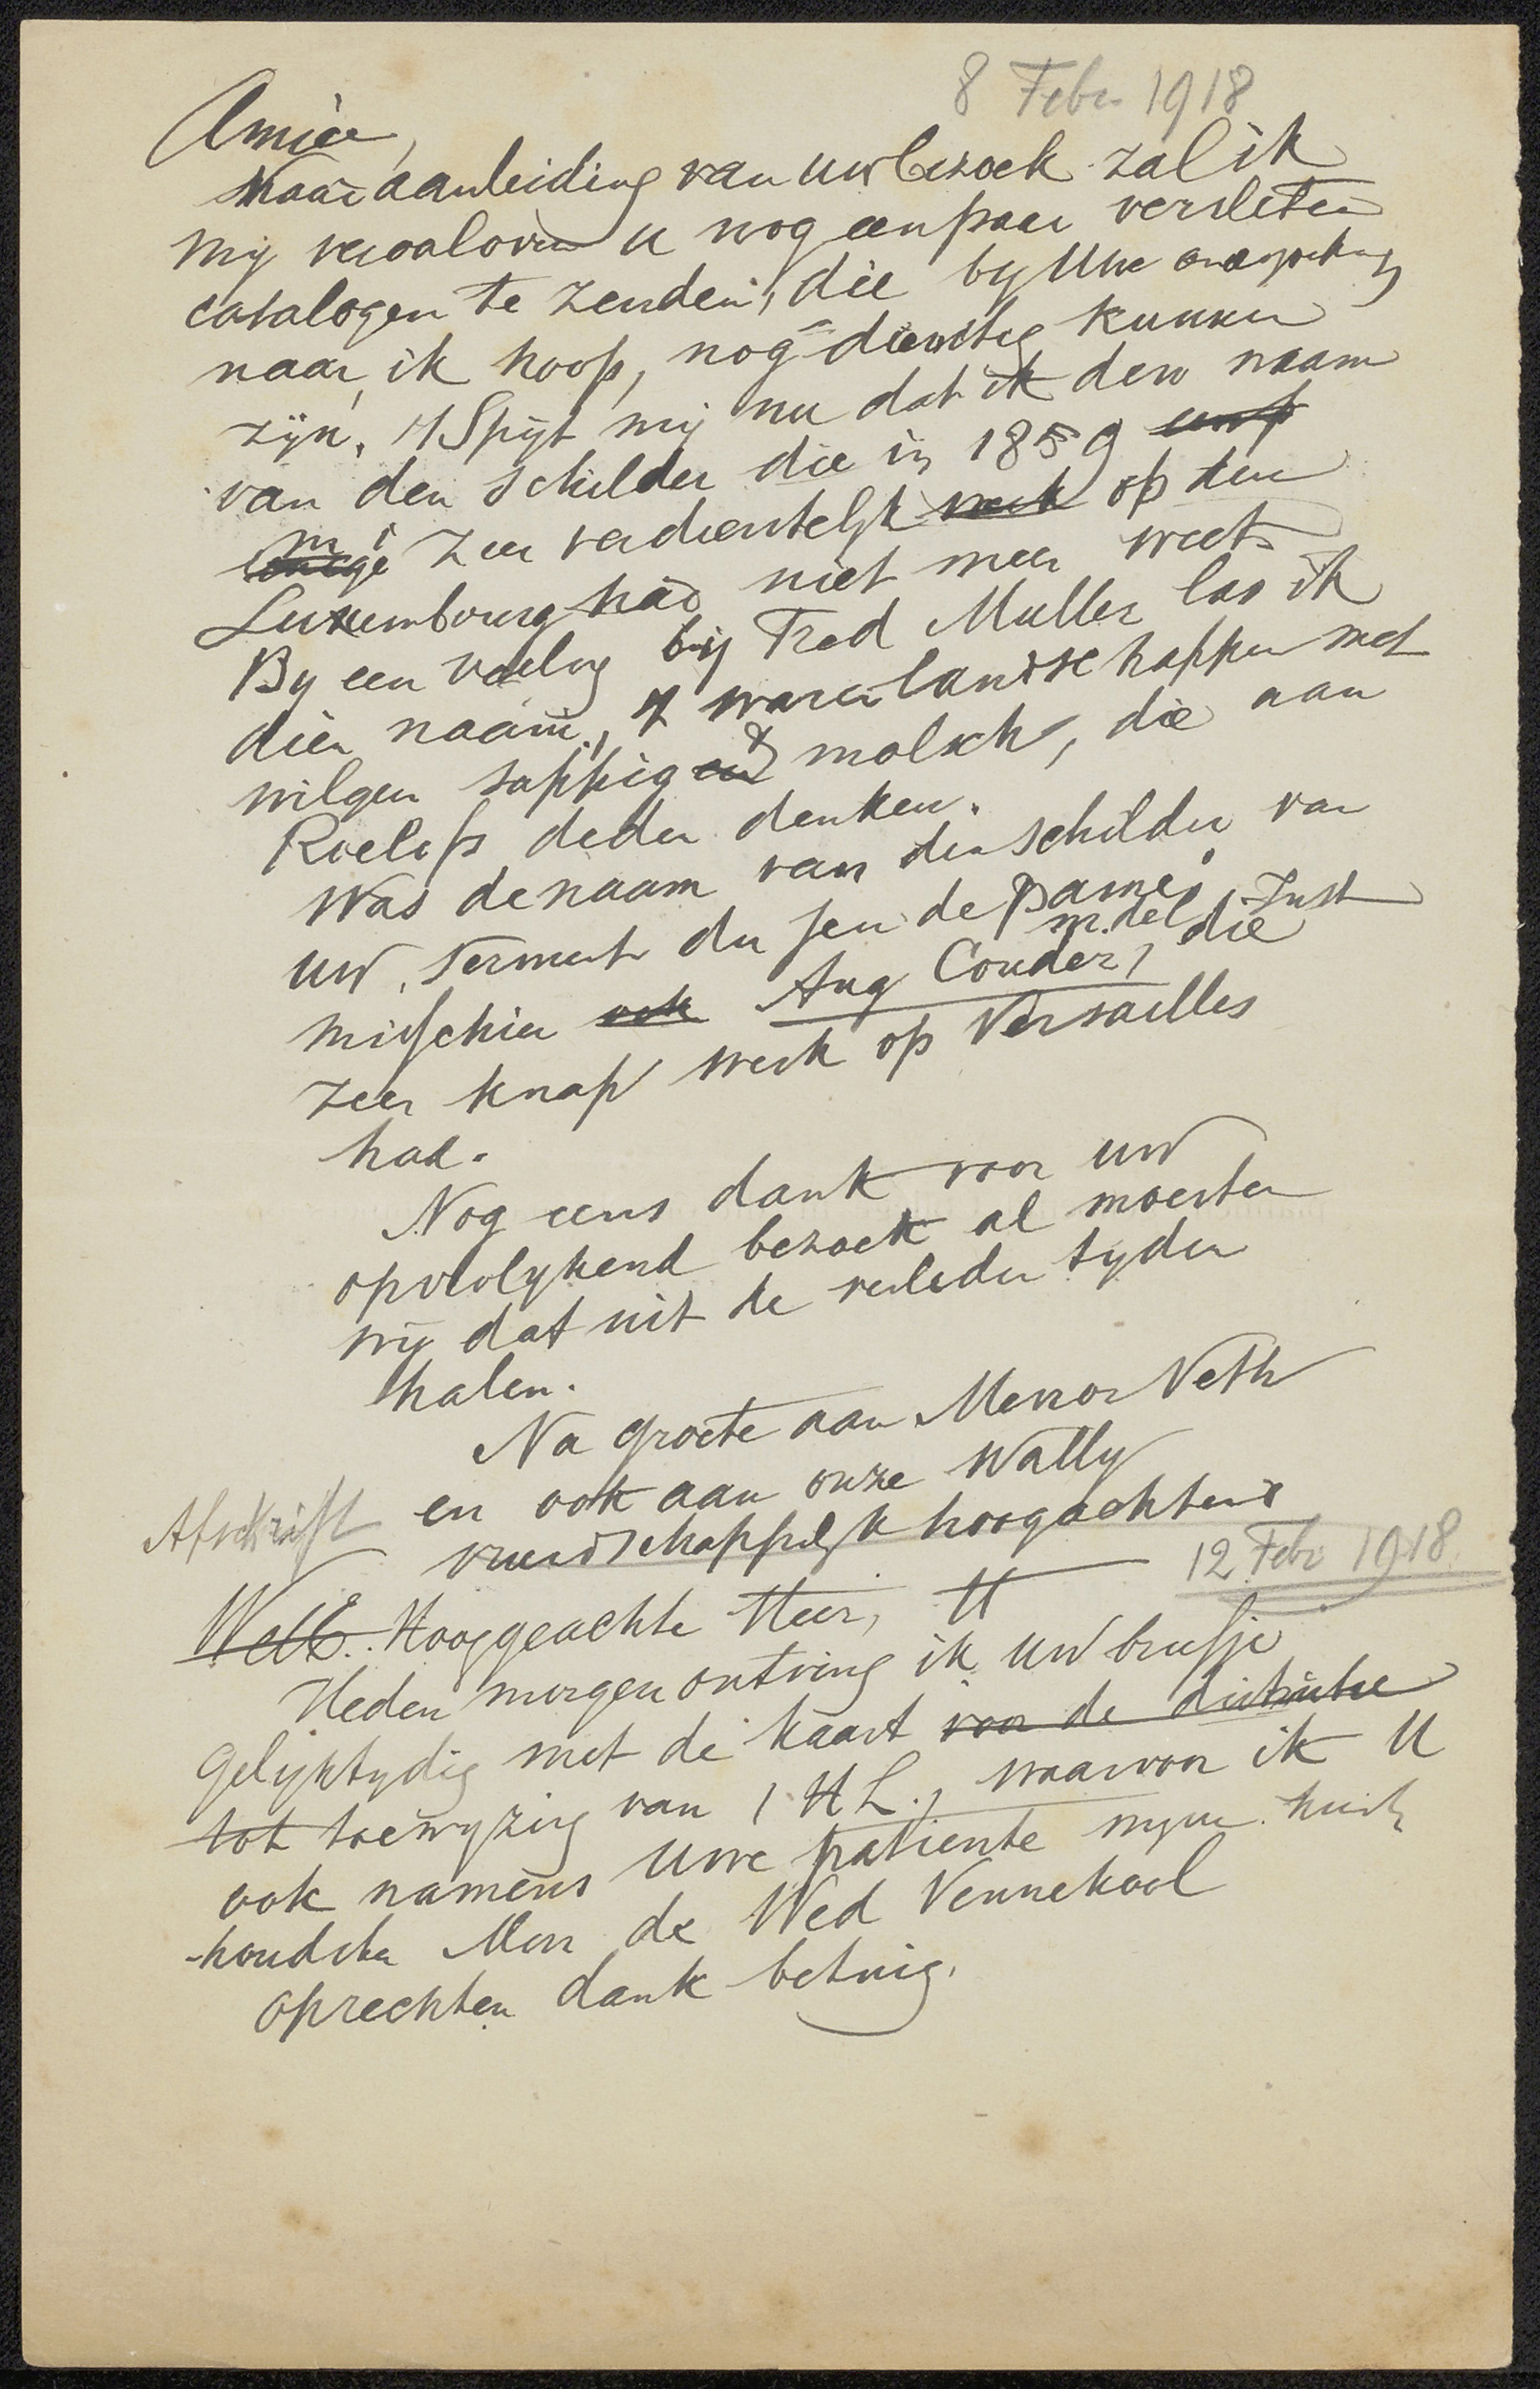 8 Febr 1918
Amice,
Naar aanleiding van uw bezoek zal ik
mij veroaloven u nog een paar versleten
catalogen te zenden, die by Uwe
naar ik hoop, nog dienstig kunnen
zijn. 't Spijt mij nu dat ik den naam
van den schilder die in 1859
zeer verdienstelyk werk op den
Luxembourg had niet meer weet.
By een veiling bij Fred Muller las ik
dien naam, 't waren landschappen met
wilgen sappig en & malsch, die aan
Roelofs deden denken.
Was de naam van den schilder van
uw Serment du jeu de Paume Inst
m. del
misschien ook Aug Couder, die
zeer knap werk op Versailles
had.
Nog eens dank voor uw
opvrolykend bezoek al moesten
wij dat uit de verleden tyden
halen.
Na groete aan Mevror Veth
en ook aan onze Wally
vriendschappelyk hoogachtend
H
Afschrift
12 Febr 1918
WelE. Hooggeachte Heer,
Heden morgen ontving ik uw briefje
gelyktydig met de kaart voor de distributie
tot toewyzing van 1 HL., waarvoor ik U
ook namens Uwe patiente myne huis
-houdster Mevr de Wed Vennekool
oprechten dank betuig.